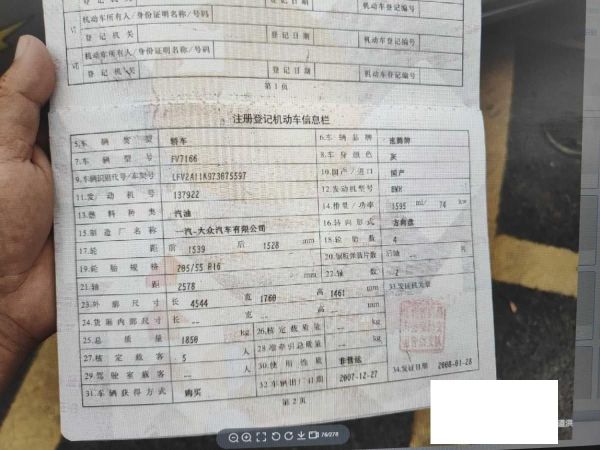 机动车所有人/身份证明名称/号码
登 记 机 关 登 记 日 期 机动车登记编号
机动车所有人/身份证明名称/号码
登 记 机 关 登 记 日 期 机动车登记编号
第 1 页
注册登记机动车信息栏
5.车 辆 类 型 轿车 6.车 辆 品 牌 速腾牌
7.车 辆 型 号 FV7166 8.车 身 颜 色 灰
9.车辆识别代号/车架号 LFV2A11K973675597 10.国 产 / 进 口 国产
11.发 动 机 号 137922 12.发动机型号 BWH
13.燃 料 种 类 汽油 14.排量/功率 1595 ml/ 74 kw
15.制 造 厂 名 称 一汽-大众汽车有限公司 16.转 向 形 式 方向盘
17.轮 距 前 1539 后 1528 mm 18.轮 胎 数 4
19.轮 胎 规 格 205/55 R16 20.钢板弹簧片数 后轴 -- 片
21.轴 距 2578 mm 22.轴 数 2
23.外 廓 尺 寸 长 4544 宽 1760 高 1461 mm 33.发证机关章
24.货厢内部尺寸 长 -- 宽 -- 高 -- mm
25.总 质 量 1850 kg 26.核 定 载 质 量 -- kg
27.核 定 载 客 5 人 28.准牵引总质量 -- kg
29.驾 驶 室 载 客 -- 人 30.使 用 性 质 非营运
31.车辆获得方式 购买 32.车辆出厂日期 2007-12-27 34.发证日期 2008-01-28
第 2 页
76/278